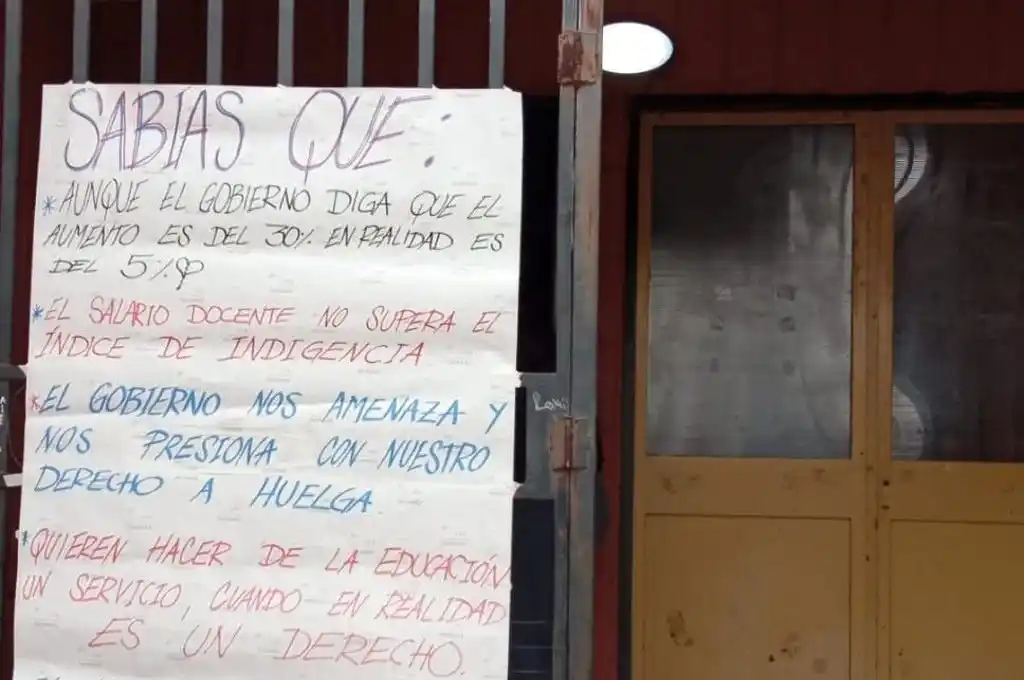 SABIAS QUE:
*AUNQUE EL GOBIERNO DIGA QUE EL
AUMENTO ES DEL 30% EN REALIDAD ES
DEL 5%
*EL SALARIO DOCENTE NO SUPERA EL
ÍNDICE DE INDIGENCIA
*EL GOBIERNO NOS AMENAZA Y
NOS PRESIONA CON NUESTRO
DERECHO A HUELGA
*QUIEREN HACER DE LA EDUCACIÓN
UN SERVICIO, CUANDO EN REALIDAD
ES UN DERECHO.